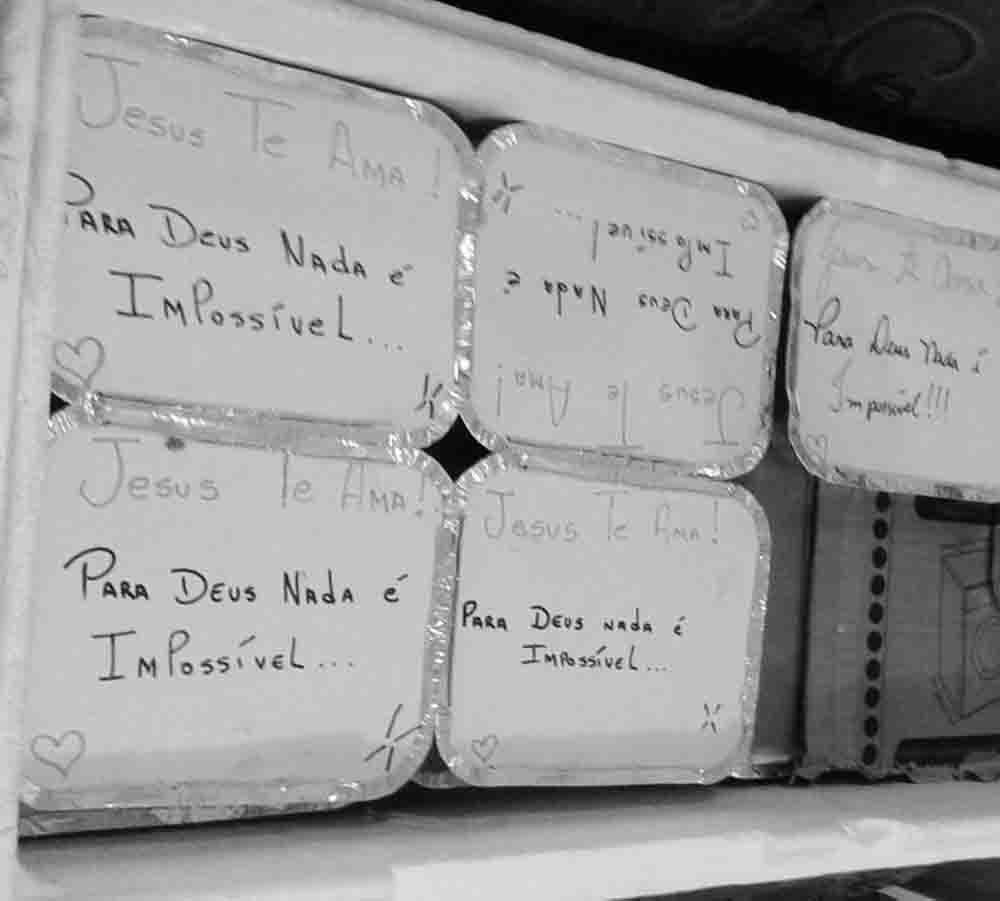 Jesus Te Ama!
Para Deus Nada é
Impossível...
Jesus Te Ama!
Para Deus Nada é
Impossível...
Jesus Te Ama
Para Deus Nada é
Impossível!!!
Jesus Te Ama!
Para Deus Nada é
Impossível...
Jesus Te Ama!
Para Deus nada é
Impossível...